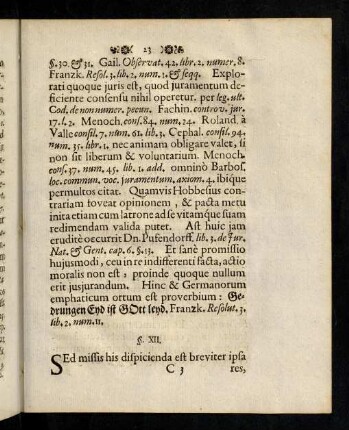 23
§.30. & 31. Gail. Observat. 42. libr. 2. numer. 8.
Franzk. Resol. 3. lib. 2. num. 1. & seqq. Explo-
rati quoque juris est, quod juramentum de-
ficiente consensu nihil operetur. per leg. ult.
Cod. de non numer. pecun. Fachin. controv. jur.
17. l. 2. Menoch. cons. 84. num. 24. Roland. à
Valle consil. 7. num. 61. lib. 3. Cephal. consil. 94.
num. 35. libr. 1. nec animam obligare valet, si
non sit liberum & voluntarium. Menoch.
cons. 37. num. 45. lib. 1. add. omninò Barbos.
loc. commun. voc. juramentum, axiom. 4. ibique
permultos citat. Quamvis Hobbesius con-
trariam foveat opinionem, & pacta metu
inita etiam cum latrone ad se vitamque suam
redimendam valida putet. Ast huic jam
eruditè occurrit Dn. Pufendorff. lib. 3. de Jur.
Nat. & Gent. cap. 6. §. 13. Et sanè promissio
hujusmodi, ceu in re indifferenti facta, actio
moralis non est: proinde quoque nullum
erit jusjurandum. Hinc & Germanorum
emphaticum ortum est proverbium: Ge-
drungen Eyd ist GOtt leyd. Franzk. Resolut. 3.
lib. 2. num. 11.
§. XII.
SEd missis his dispicienda est breviter ipsa
C 3 res,